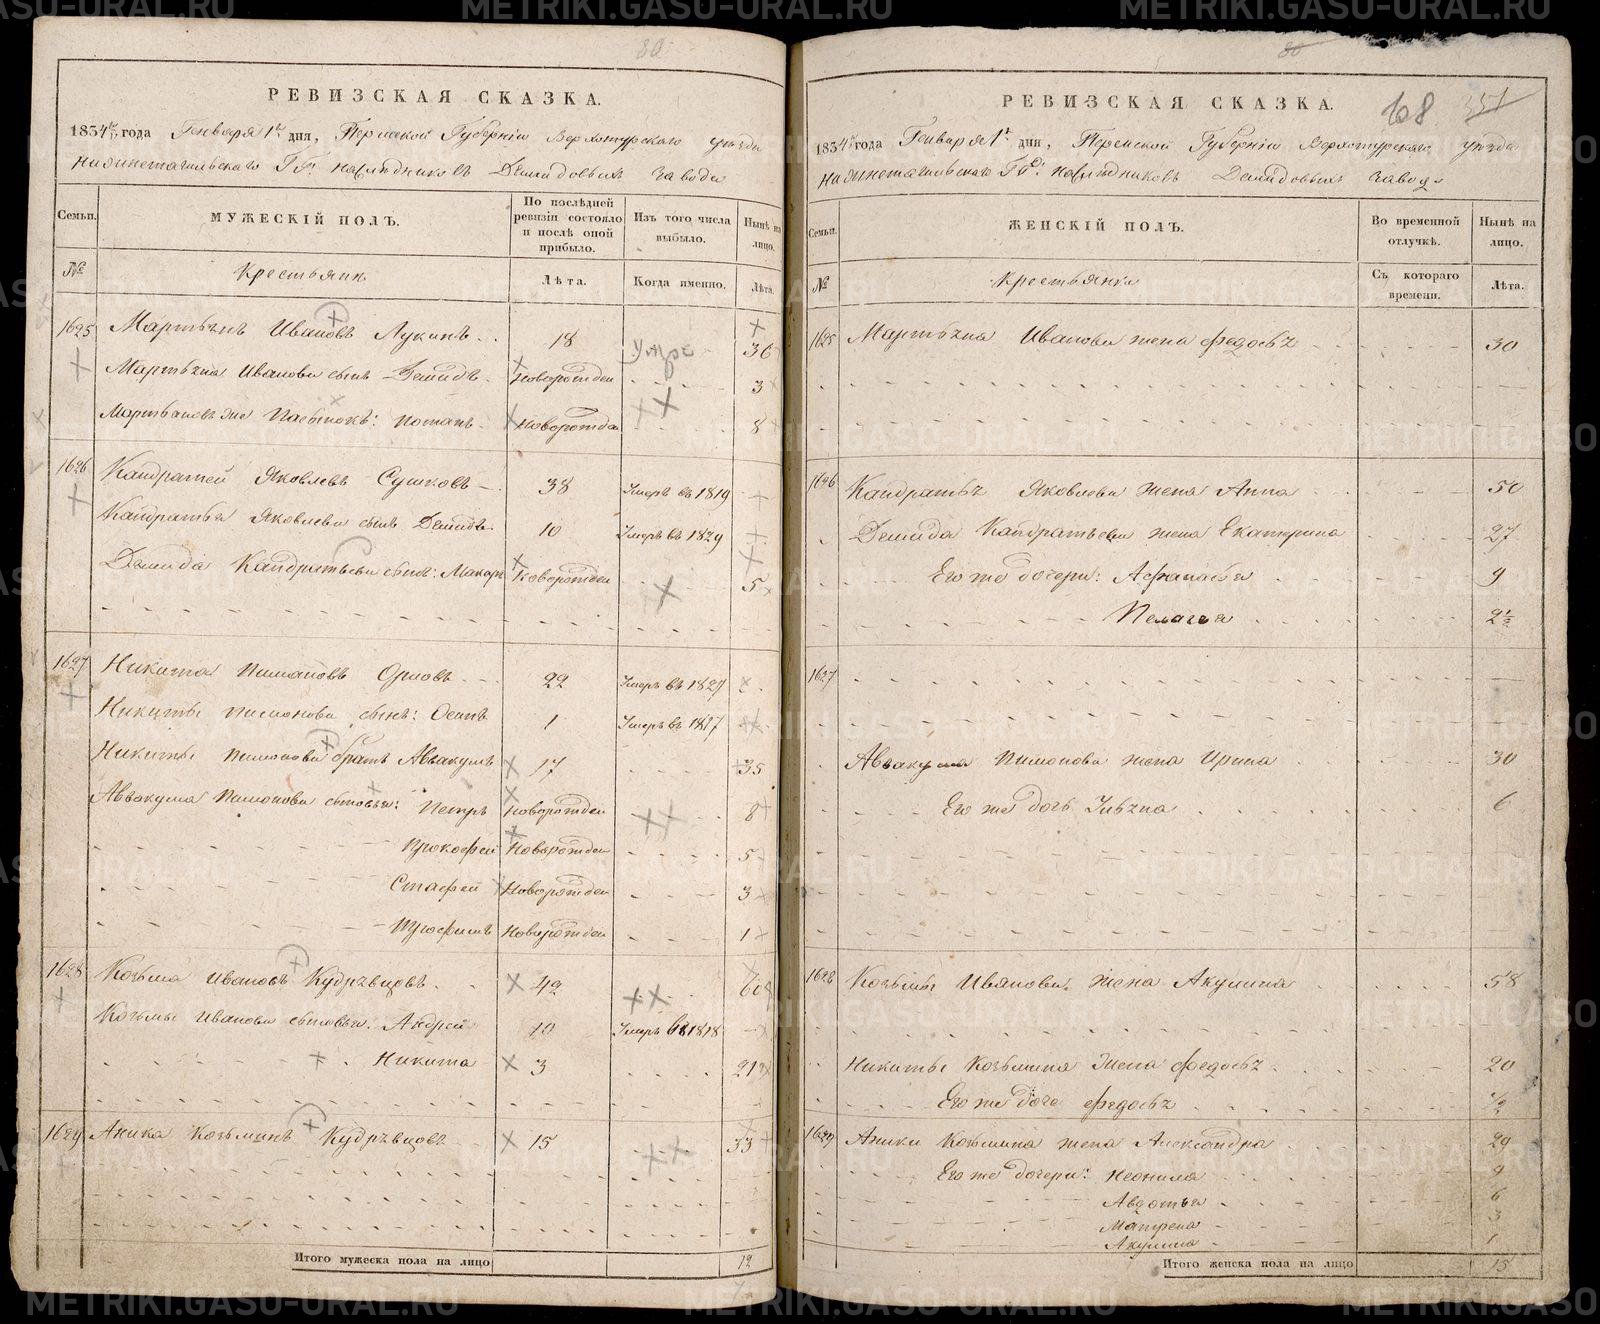 80
РЕВИЗСКАЯ СКАЗКА.
1834 года Генваря 1 дня, Пермской Губерніи Верхотурскаго уѣзда
Нижнетагильскаго Гг: наслѣдниковъ Демидовыхъ завода
Семьи.
МУЖЕСКІЙ ПОЛЪ.
По послѣдней ревизіи состояло и послѣ оной прибыло.
Изъ того числа выбыло.
Нынѣ на лицо.
№
Крестьянъ
Лѣта.
Когда именно.
Лѣта.
1625 Мартынъ Ивановъ Лукинъ 18 36
Мартына Иванова сынъ Демидъ Новорожден 3
Мартыновъ же Пасынокъ: Потапъ Новорожден 8
1626 Кандратей Яковлевъ Сушковъ 38 Умеръ въ 1819
Кандратья Яковлева сынъ Демидъ 10 Умеръ въ 1829
Демида Кандратьева сынъ: Макаръ Новорожден 5
1627 Никита Пимановъ Орловъ 22 Умеръ въ 1827
Никиты Пимонова сынъ: Осипъ 1 Умеръ въ 1827
Никиты Пимонова братъ Аввакумъ 17 35
Аввакума Пимонова сыновья: Петръ Новорожден 8
Прокофей Новорожден 5
Стафей Новорожден 3
Новорожден 1
1628 Козьма Ивановъ Кудрѣвцовъ 42 60
Козьмы Иванова сыновья: Андрей 10 Умеръ въ 1818
Никита 3 21
1629 Аника Козьминъ Кудрѣвцовъ 15 33
Итого мужеска пола на лицо 12
80
РЕВИЗСКАЯ СКАЗКА.
68 351
1834 года Генваря 1 дня, Пермской Губерніи Верхотурскаго уѣзда
Нижнетагильскаго Гг: наслѣдниковъ Демидовыхъ завода
Семьи.
ЖЕНСКІЙ ПОЛЪ.
Во временной отлучкѣ.
Нынѣ на лицо.
№
Крестьянки
Съ котораго времени.
Лѣта.
1625 Мартына Иванова жена Федосья 30
1626 Кандратья Яковлева жена Анна 50
Демида Кандратьева жена Екатерина 27
Его же дочери: Афанасья 9
Пелагея 2½
1627
Аввакума Пимонова жена Ирина 30
Его же дочь 6
1628 Козьмы Иванова жена Акулина 58
Никиты Козьмина жена Федосья 20
Его же дочь Федосья ½
1629 Аники Козьмина жена Александра 29
Его же дочери: Неонила 9
Авдотья 6
Матрена 3
Акулина 1
Итого женска пола на лицо 15
METRIKI.GASU-URAL.RU